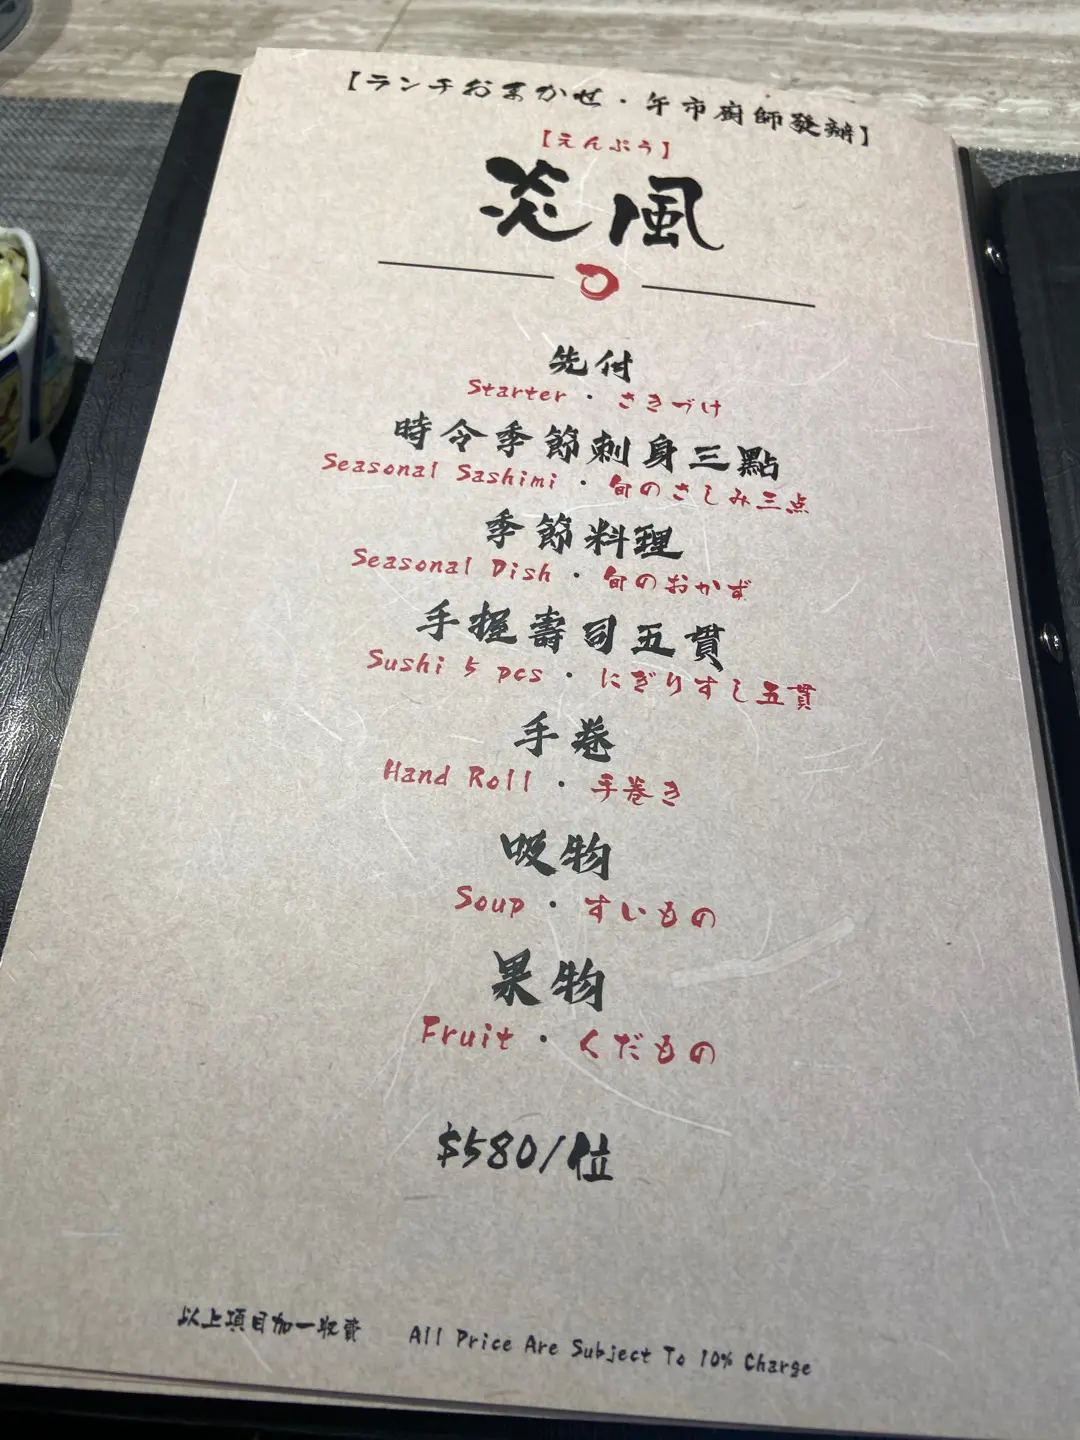 【ランチおまかせ・午市廚師發辦】
【えんぷう】
炎風
先付
Starter・さきづけ
時令季節刺身三點
Seasonal Sashimi・旬のさしみ三点
季節料理
Seasonal Dish・旬のおかず
手握壽司五貫
Sushi 5 pcs・にぎりすし五貫
手卷
Hand Roll・手巻き
吸物
Soup・すいもの
果物
Fruit・くだもの
$580/位
以上項目加一收費 All Price Are Subject To 10% Charge